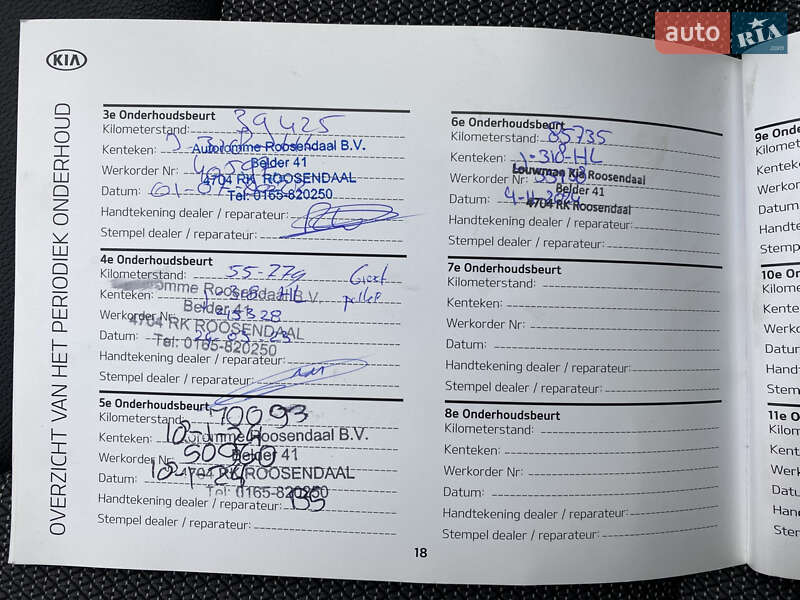 auto RIA.com
KIA
OVERZICHT VAN HET PERIODIEK ONDERHOUD
3e Onderhoudsbeurt
Kilometerstand: 39425
Kenteken:
Autoromme Roosendaal B.V.
Belder 41
Werkorder Nr:
4704 RK ROOSENDAAL
Datum: 01-07-
Tel: 0165-820250
Handtekening dealer / reparateur:
Stempel dealer / reparateur:
4e Onderhoudsbeurt
Kilometerstand: 55-779
omme Roosendaal B.V.
Kenteken:
Belder 41
Werkorder Nr: 45328
4704 RK ROOSENDAAL
Datum:
Tel: 0165-820250
Handtekening dealer / reparateur:
Stempel dealer / reparateur:
5e Onderhoudsbeurt
Kilometerstand: 70093
Kenteken:
Autoromme Roosendaal B.V.
Belder 41
Werkorder Nr:
4704 RK ROOSENDAAL
Datum:
Tel: 0165-820250
Handtekening dealer / reparateur:
Stempel dealer / reparateur:
6e Onderhoudsbeurt
Kilometerstand: 85735
Kenteken: J-310-HL
Louwman Kia Roosendaal
Werkorder Nr:
Belder 41
Datum: 4-11-2024
4704 RK Roosendaal
Handtekening dealer / reparateur:
Stempel dealer / reparateur:
7e Onderhoudsbeurt
Kilometerstand:
Kenteken:
Werkorder Nr:
Datum:
Handtekening dealer / reparateur:
Stempel dealer / reparateur:
8e Onderhoudsbeurt
Kilometerstand:
Kenteken:
Werkorder Nr:
Datum:
Handtekening dealer / reparateur:
Stempel dealer / reparateur:
18
9e On
Kilomet
Kentek
Werkor
Datum
Handt
Stemp
10e O
Kilom
Kente
Werk
Datu
Han
Ster
11e O
Kilom
Kent
Wer
Dat
Han
Ster